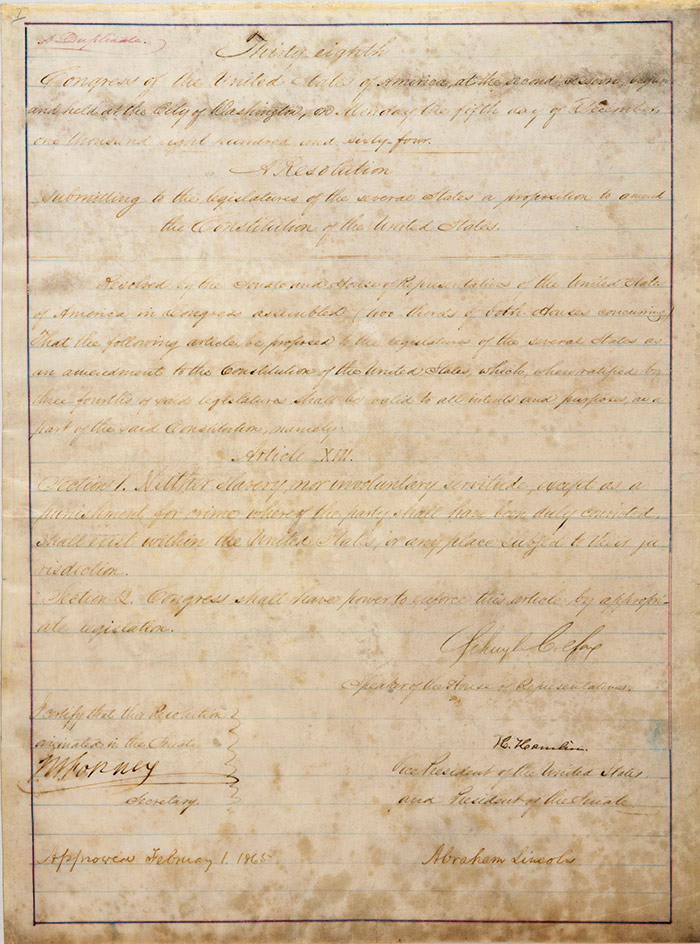 A Duplicate.
Thirty eighth
Congress of the United States of America, at the second session, begun
and held at the City of Washington, on Monday the fifth day of December,
one thousand eight hundred and sixty-four.
A Resolution
Submitting to the legislatures of the several States a proposition to amend
the Constitution of the United States.
Resolved by the Senate and House of Representatives of the United States
of America in Congress assembled, (two thirds of both Houses concurring)
That the following article be proposed to the legislatures of the several States as
an amendment to the Constitution of the United States, which, when ratified by
three fourths of said legislatures shall be valid to all intents and purposes, as a
part of the said Constitution, namely:
Article XIII.
Section 1. Neither slavery, nor involuntary servitude, except as a
punishment for crime whereof the party shall have been duly convicted,
shall exist within the United States, or any place subject to their ju-
risdiction.
Section 2. Congress shall have power to enforce this article, by appropri-
ate legislation.
Schuyl Colfax
Speaker of the House of Representatives.
I certify that this Resolution
originated in the Senate
H. Hamlin.
JW Forney
Vice President of the United States,
Secretary.
and President of the Senate
Approved February 1. 1865
Abraham Lincoln